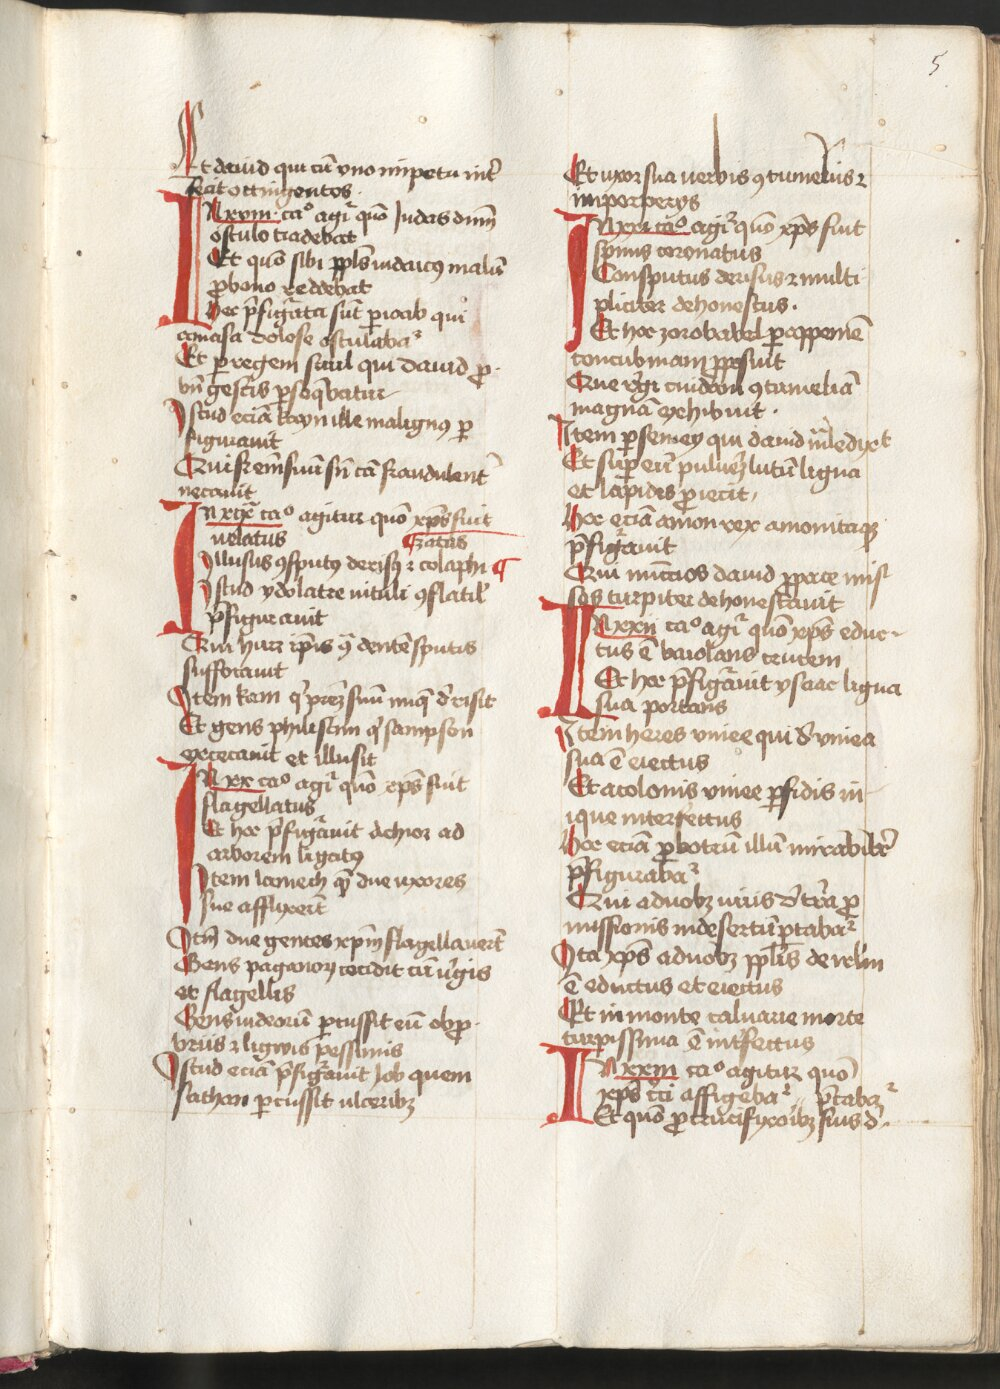 5
Et dauid qui cū vno impetu int̄
fecit octingentos
IN xviii ca° agit᷑ quō Judas dnm̄
osculo tradebat
Et quō sibi ppl̄s iudaicꝰ malū
ꝓ bono reddebat
Hec p̄figurata sūt ꝑ ioab qui
amasā dolose osculabat᷑
Et ꝑ regem saul qui dauid ꝓ
bn̄ gestis ꝑsequebatur
Istud eciā kayn ille malignꝰ p̄
figurauit
Qui fr̄em suū sn̄ cā fraudulent̄
necauit
IN xix ca° agitur quō xp̄s fuit
uelatus
Illusus ꝯsputꝰ derisꝰ ⁊ colaphi¶zatus
Istud ydolatre uituli ꝯflatil̄
p̄figurauit
Qui hur ip̄is ꝯ̄dentē sputis
suffocauit
Item kam qͥ pr̄em suū iniq̄ d̓risit
Et gens philistim qͣ sampson
excecauit et illusit
IN xx ca° agit᷑ quō xp̄s fuit
flagellatus
Et hoc p̄figurauit achior ad
arborem ligatꝰ
Item lamech qm̄ due uxores
sue afflixerūt
Itm̄ due gentes xp̄m flagellauerūt
Gens paganoꝝ cecidit cū v̓gis
et flagellis
Gens iudeorum ꝑcussit eū obꝓ
briis ⁊ lignis pessimis
Istud eciā p̄figurauit Job quem
sathan ꝑcussit ulceribꝫ
Et uxor sua uerbis ꝯtumeliis ⁊
inproperiis
IN xxi ca° agit᷑ quō xp̄s fuit
spinis coronatus
Consputus derisus ⁊ multi
pliciter dehonestus
Et hoc zorobabel ꝑ appemē
concubinam ꝓposuit
Que r̓gi cuidam ꝯtumeliā
magnā exhibuit
Item ꝑ semey qui dauid mͣledixͥt
Et suꝑ eū puluer̄ lutū ligna
et lapides ꝓiecit
Hoc eciā amon rex amonitaꝝ
p̄figurauit
Qui nūccios dauid ꝓ pace mis
sos turpiter dehonestauit
IN xxii ca° agit᷑ quō xp̄s educ
tus ē baiolans crucem
Et hoc p̄figurauit ysaac ligna
sua portans
Item heres vinee qui d̓ vinea
sua ē eiectus
Et a colonis vinee ꝑfidis in
ique interfectus
Hoc eciā ꝑ botrū illū mirabilit̄
p̄figurabat᷑
Qui a duobꝫ uiris d̓ tr̄a ꝓ
missionis in desertū portabat᷑
Ita xp̄s a duobꝫ ppl̄is de irl̄m
ē eductus et eiectus
Et in monte caluarie morte
turpissima ē int̄fectus
IN xxiii ca° agitur quō
xp̄s cͥci affigebat᷑ p̄tabat᷑
Et quō ꝓ crucifixoribꝫ suis d̓